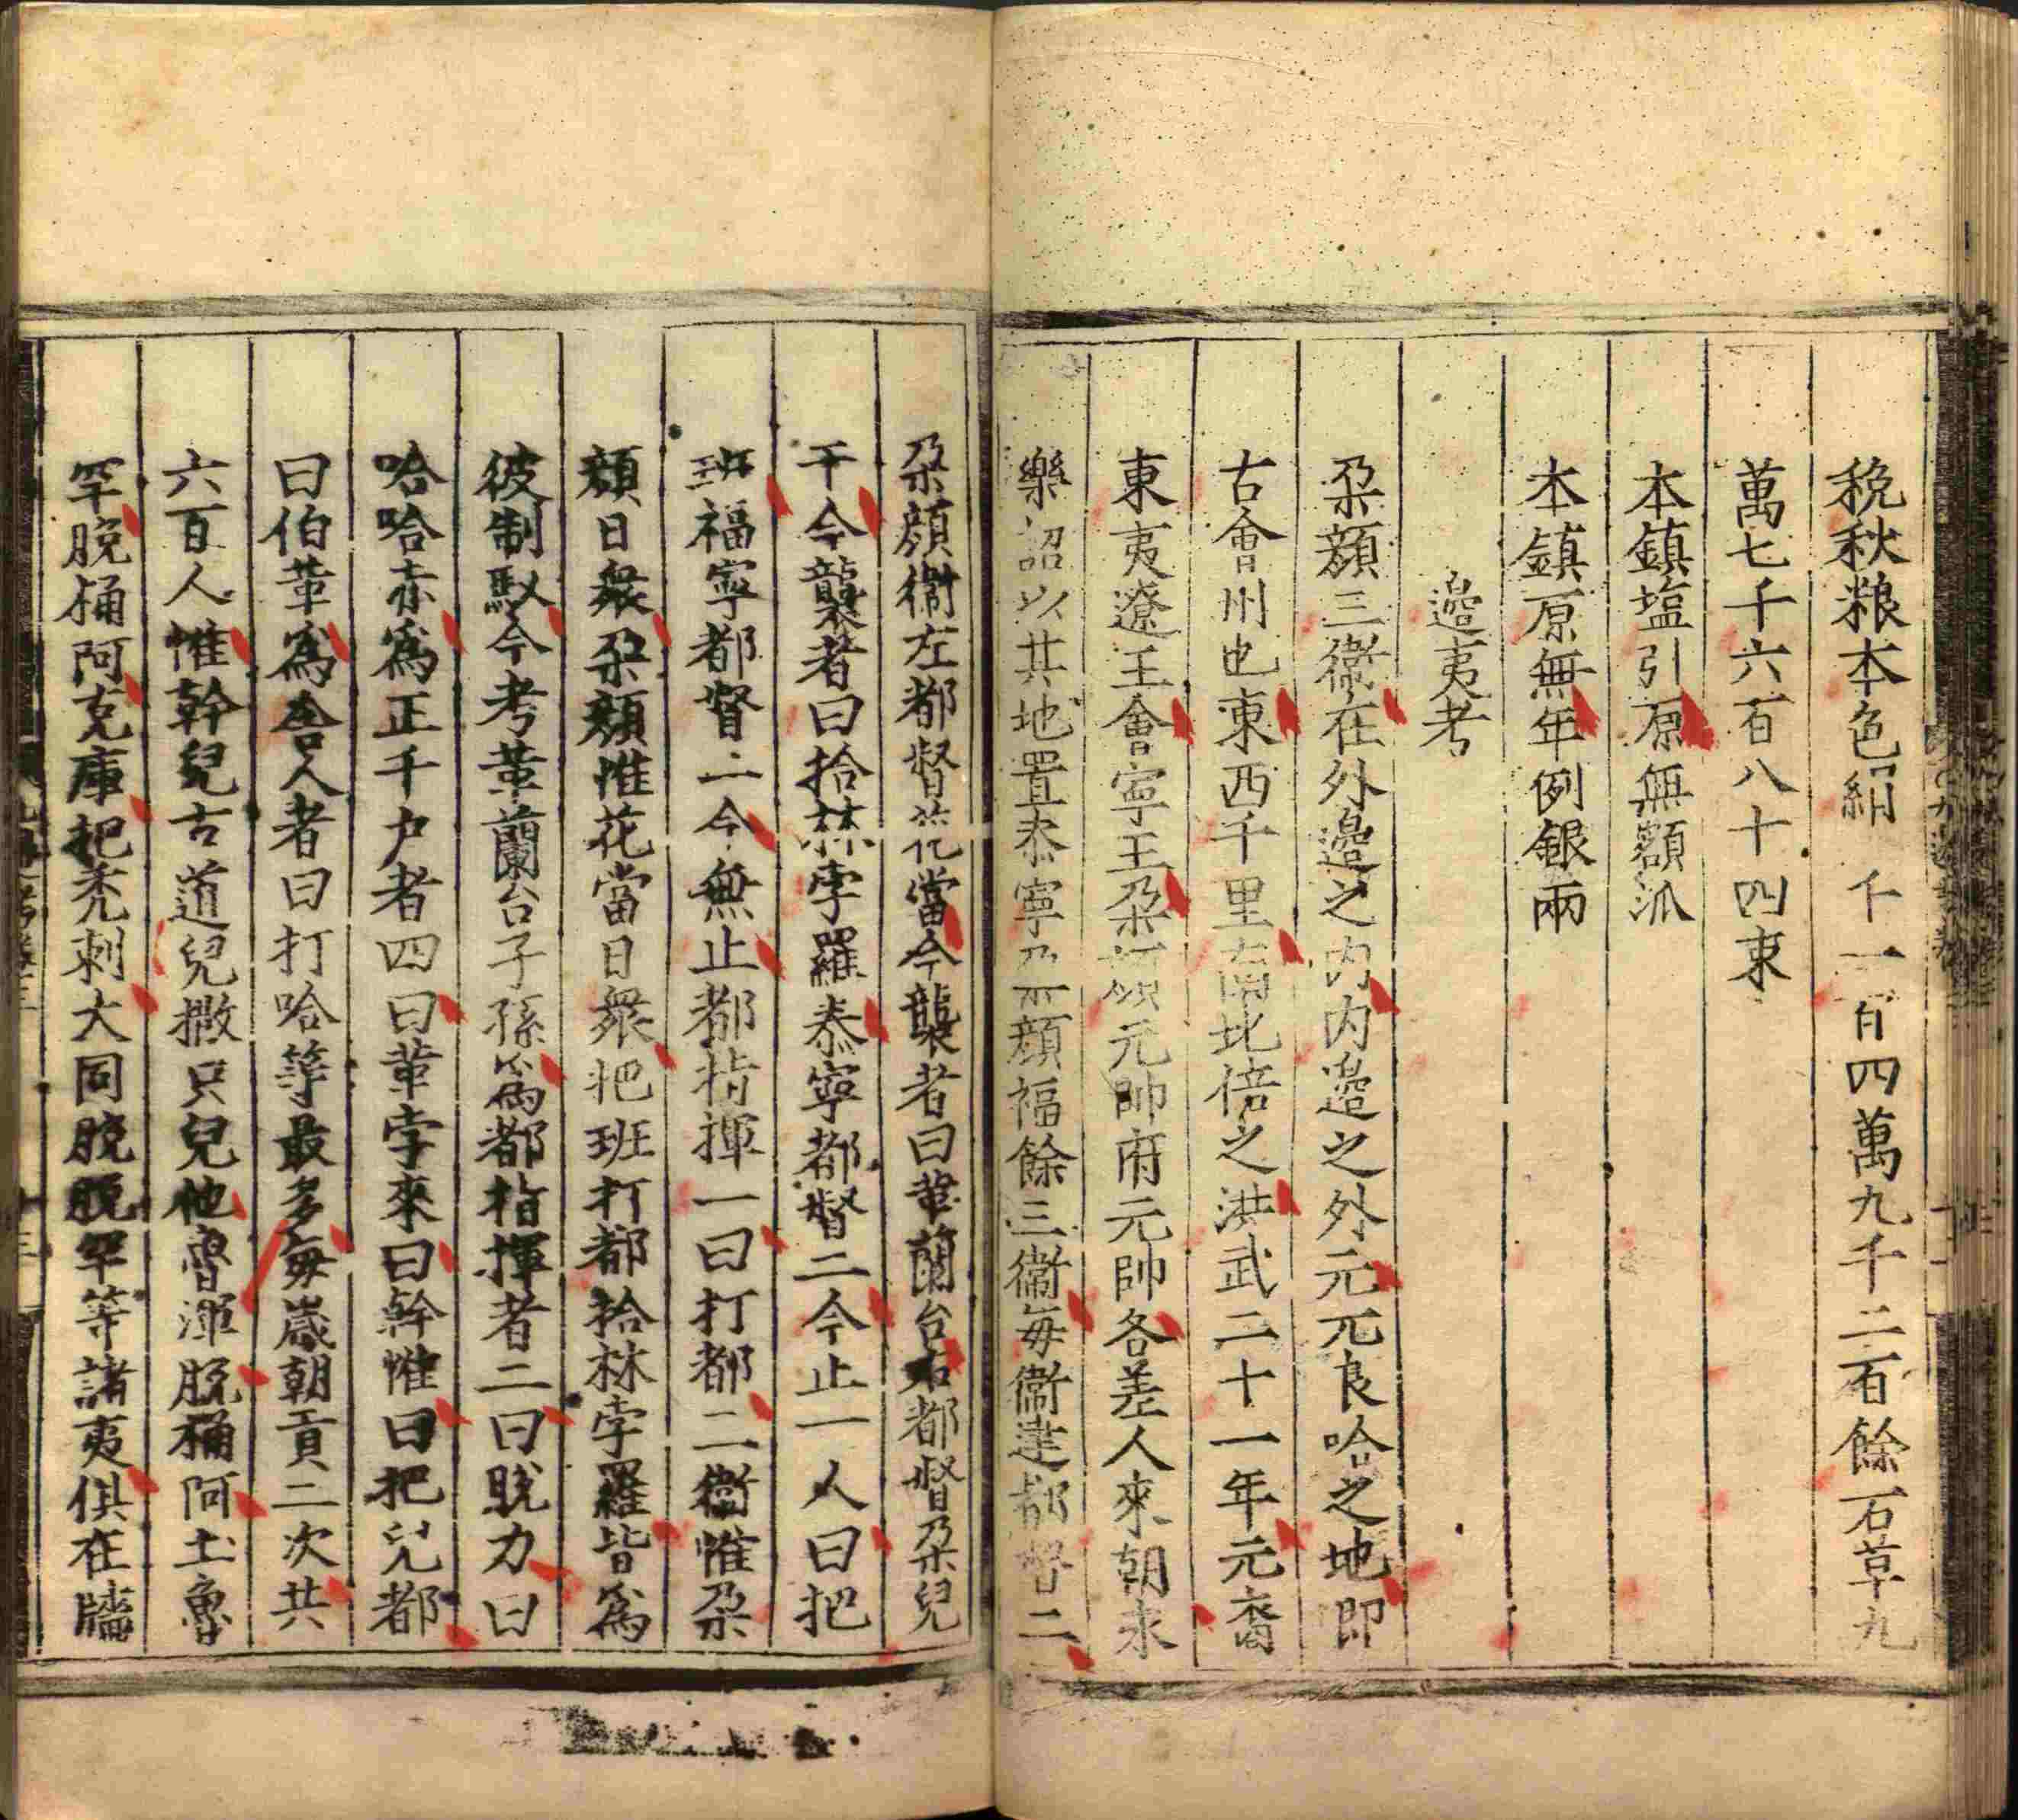 稅秋粮本色絹 千一百四萬九千二百餘石草九
萬七千六百八十四束
本鎮塩引原無額派
本鎮原無年例銀兩
邊夷考
朶顏三衛在外邊之內內邊之外元兀良哈之地即
古會州也東西千里南北倍之洪武二十一年元裔
東夷遼王會寧王朶顏元帥府元帥各差人來朝求
樂詔以其地置泰寧朶顏福餘三衛每衛建都督二
朶顏衛左都督花當今襲者曰革蘭台右都督朶兒
干今襲者曰拾林孛羅泰寧都督二今止一人曰把
班福寧都督二今無止都指揮一曰打都二衛惟朶
顏日衆朶顏惟花當日衆把班打都拾林孛羅皆爲
彼制馭今考革蘭台子孫爲都指揮者二曰脫力曰
哈哈赤爲正千户者四曰革孛來曰幹惟曰把兒都
曰伯革爲舍人者曰打哈等最多每歲朝貢二次共
六百人惟幹兒古道兒撒只兒他魯渾脫桶阿土魯
罕脫桶阿克庫把禿刺大同脫脫罕等諸夷俱在牆